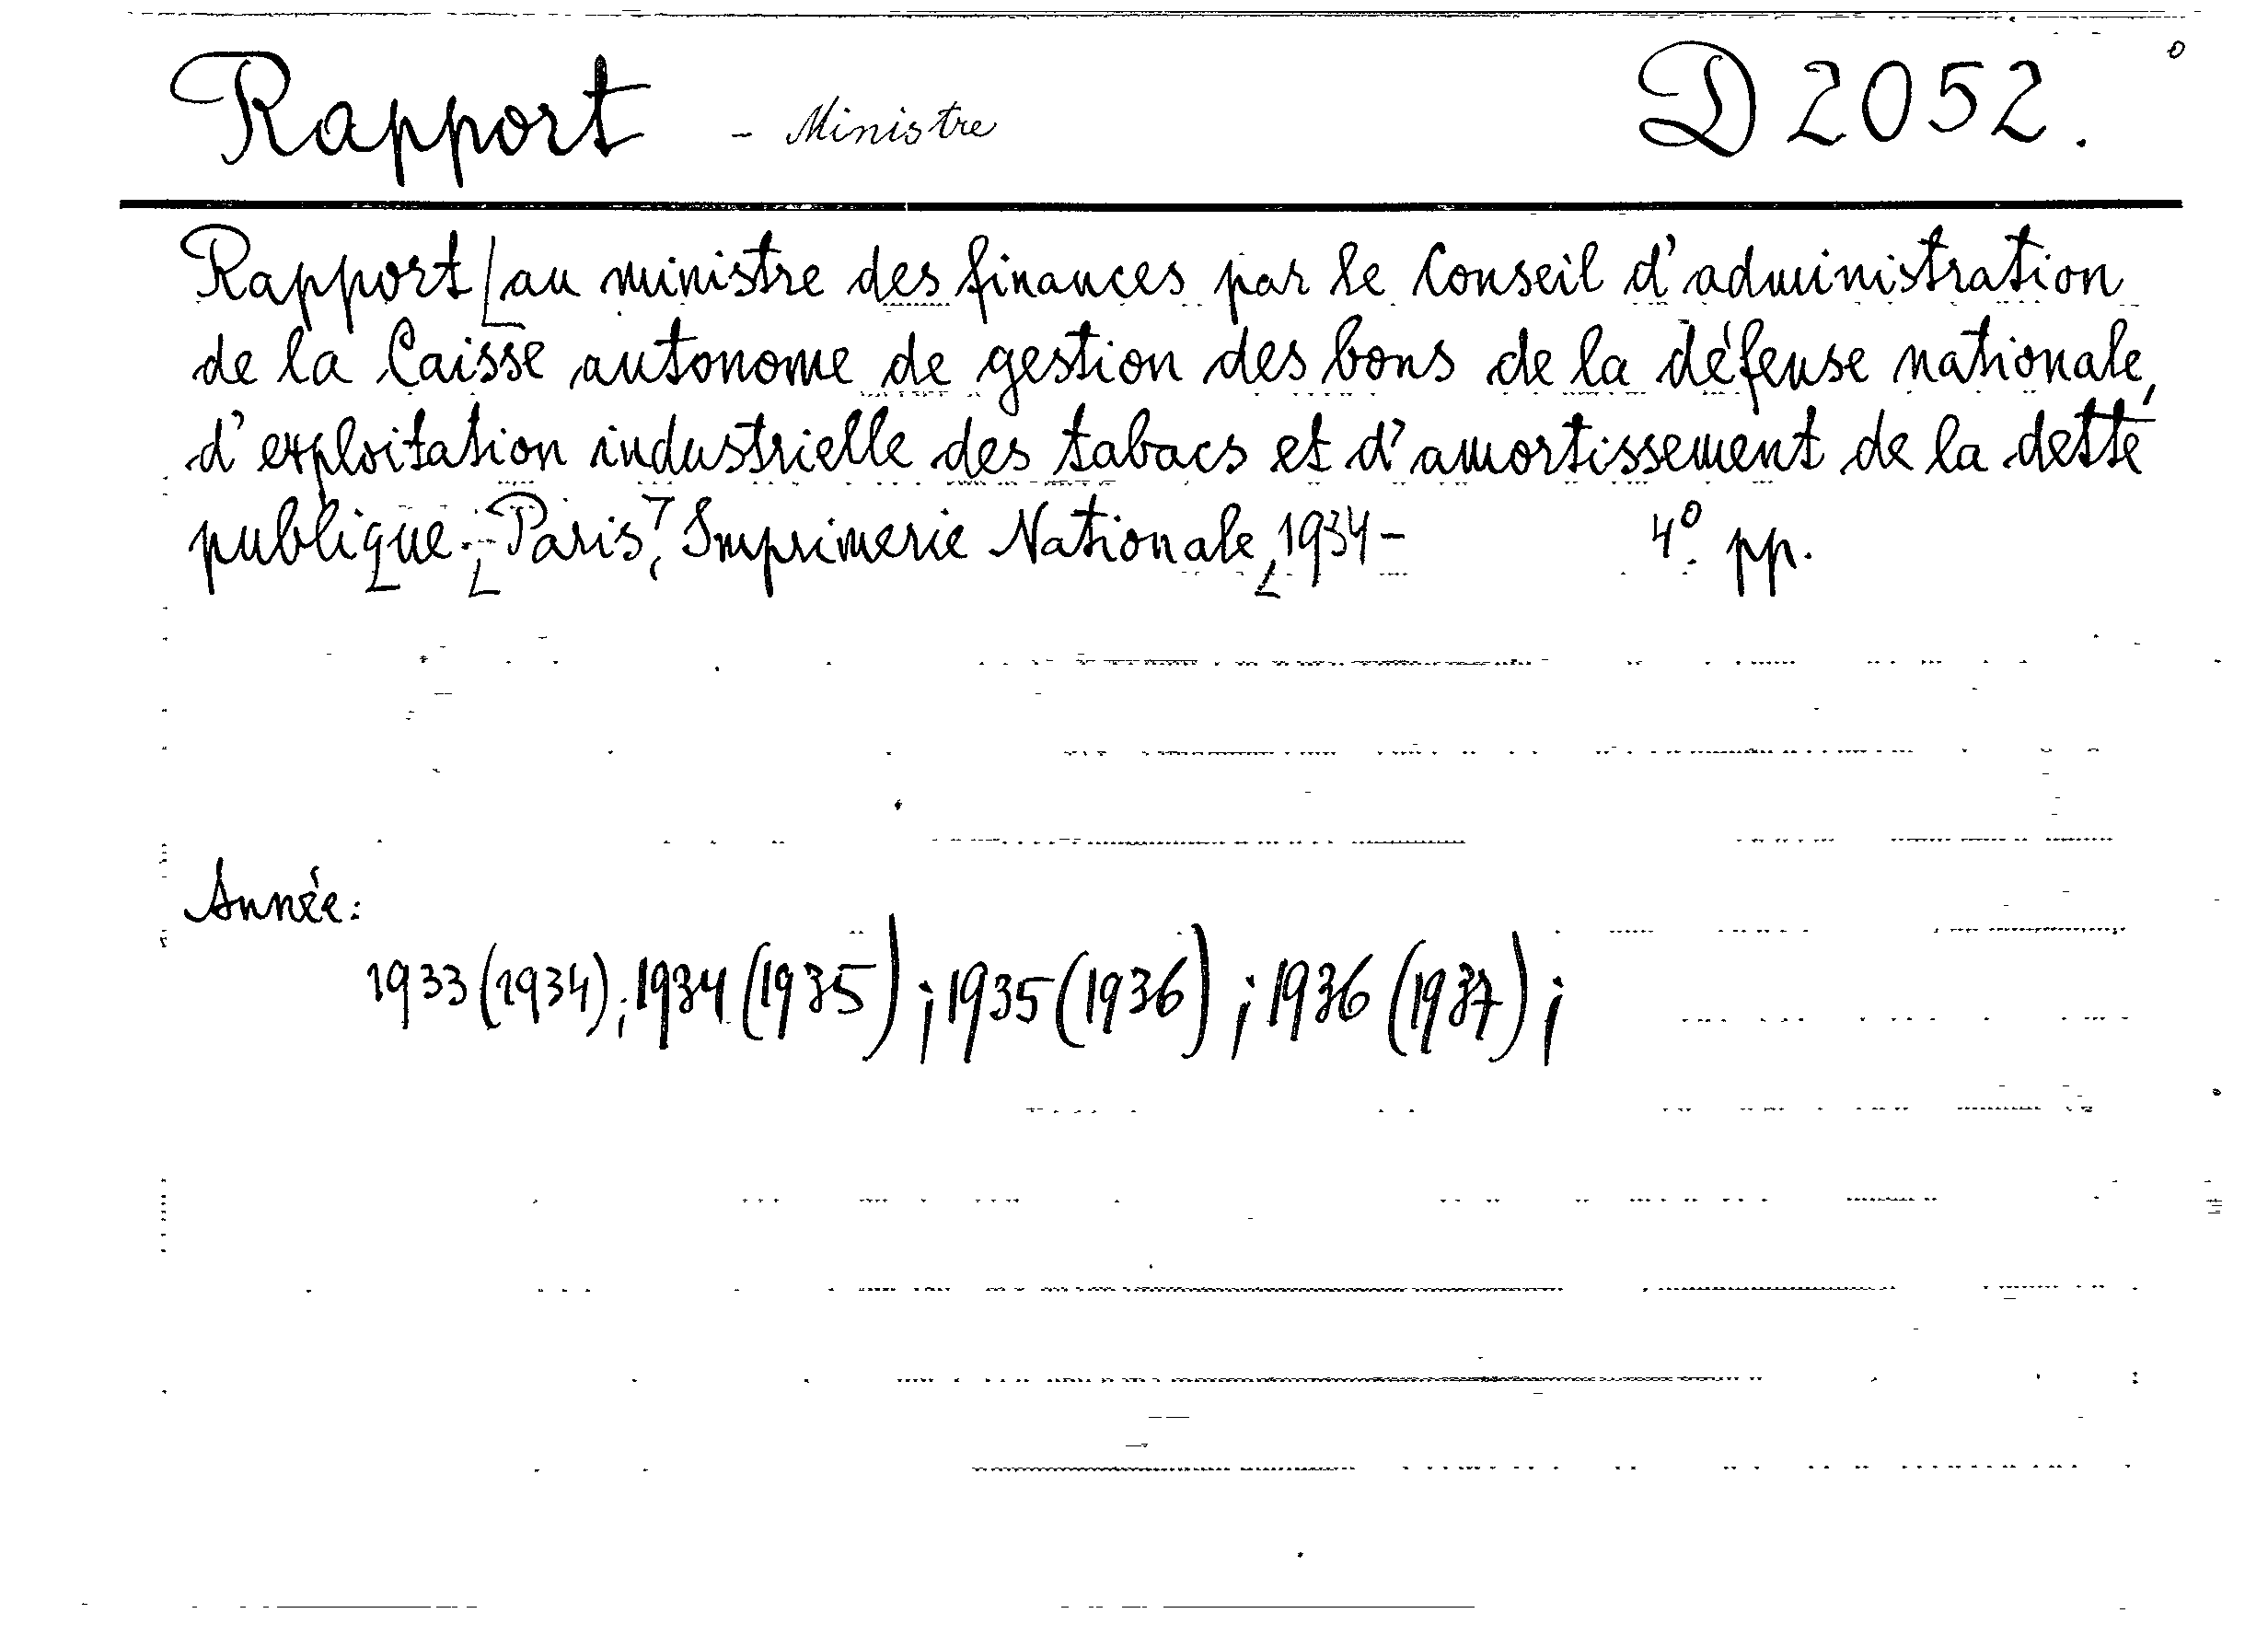 Rapport - Ministre D 2052.
Rapport au ministre des finances par le Conseil d'administration
de la Caisse autonome de gestion des bons de la défense nationale,
d'exploitation industrielle des tabacs et d'amortissement de la dette
publique. Paris, Imprimerie Nationale, 1934- 4° pp.
Année:
1933 (1934); 1934 (1935); 1935 (1936); 1936 (1937);